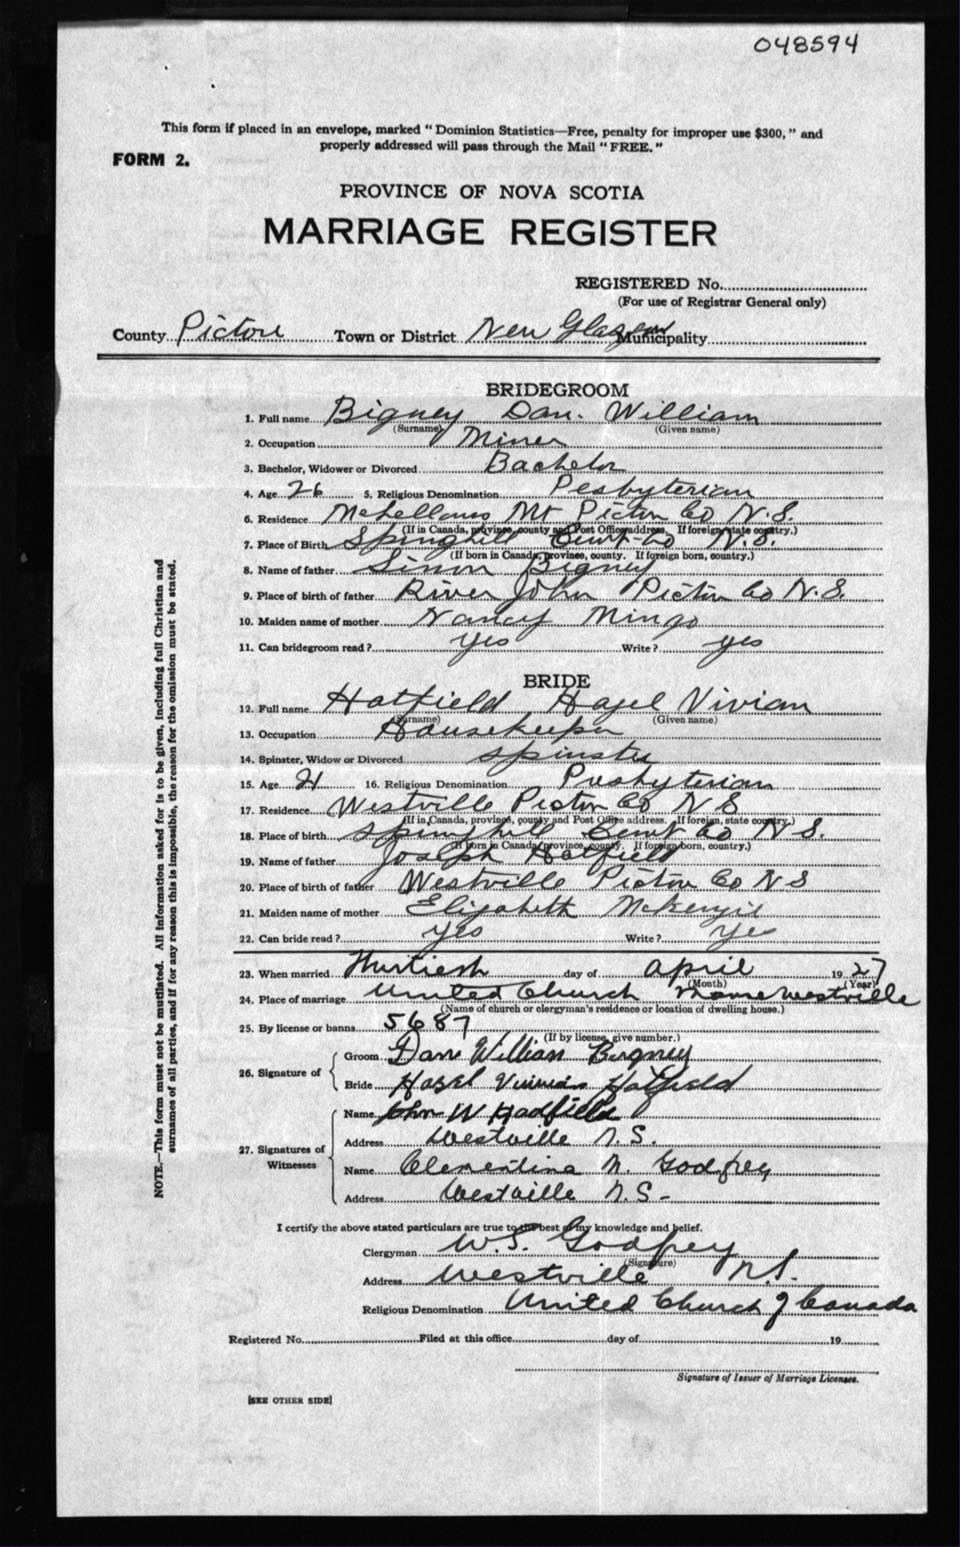 048594
This form if placed in an envelope, marked "Dominion Statistics—Free, penalty for improper use $300," and
properly addressed will pass through the Mail "FREE."
FORM 2.
PROVINCE OF NOVA SCOTIA
MARRIAGE REGISTER
REGISTERED No.
(For use of Registrar General only)
County Pictou Town or District New Glasgow Municipality
BRIDEGROOM
1. Full name Bigney Dan. William
(Surname) (Given name)
2. Occupation Miner
3. Bachelor, Widower or Divorced Bachelor
4. Age 26 5. Religious Denomination Presbyterian
6. Residence McLellans Mt Pictou Co N.S.
(If in Canada, province, county and Post Office address. If foreign, state country.)
7. Place of Birth Springhill Cum Co N.S.
(If born in Canada, province, county. If foreign born, country.)
8. Name of father Simon Bigney
9. Place of birth of father River John Pictou Co N.S.
10. Maiden name of mother Nancy Mingo
11. Can bridegroom read? yes Write? yes
BRIDE
12. Full name Hatfield Hazel Vivian
(Surname) (Given name)
13. Occupation Housekeeper
14. Spinster, Widow or Divorced Spinster
15. Age 21 16. Religious Denomination Presbyterian
17. Residence Westville Pictou Co N S
(If in Canada, province, county and Post Office address. If foreign, state country.)
18. Place of birth Springhill Cum Co N S.
(If born in Canada, province, county. If foreign born, country.)
19. Name of father Joseph Hatfield
20. Place of birth of father Westville Pictou Co N S
21. Maiden name of mother Elizabeth McKenzie
22. Can bride read? yes Write? yes
23. When married Thirtieth day of April 1927
(Month) (Year)
24. Place of marriage United Church Manse Westville
(Name of church or clergyman's residence or location of dwelling house.)
25. By license or banns 5687
(If by license, give number.)
26. Signature of
Groom Dan William Bigney
Bride Hazel Vivian Hatfield
27. Signatures of Witnesses
Name John W Hadfield
Address Westville N.S.
Name Clementina M. Godfrey
Address Westville N.S.
I certify the above stated particulars are true to the best of my knowledge and belief.
Clergyman W.S. Godfrey
(Signature)
Address Westville N.S.
Religious Denomination United Church of Canada
Registered No. Filed at this office day of 19
Signature of Issuer of Marriage Licenses.
[SEE OTHER SIDE]
NOTE.—This form must not be mutilated. All information asked for is to be given, including full Christian and
surnames of all parties, and if for any reason this is impossible, the reason for the omission must be stated.